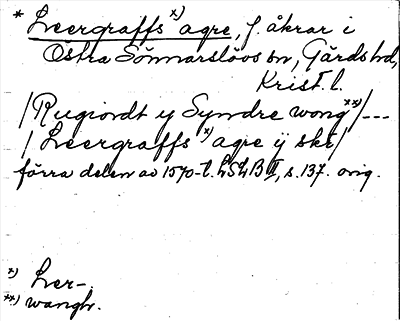 * Leergraffs *) agre, f. åkrar i
Östra Sönnarslövs sn, Gärds hd,
Krist. l.
/Rugiordt y Syndre wong **)/---
/Leergraffs *) agre ÿ ske/
förra delen av 1570-t. LSLB II, s. 137. orig.
*) Ler-.
**) wangh.